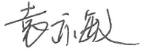 袁永敏